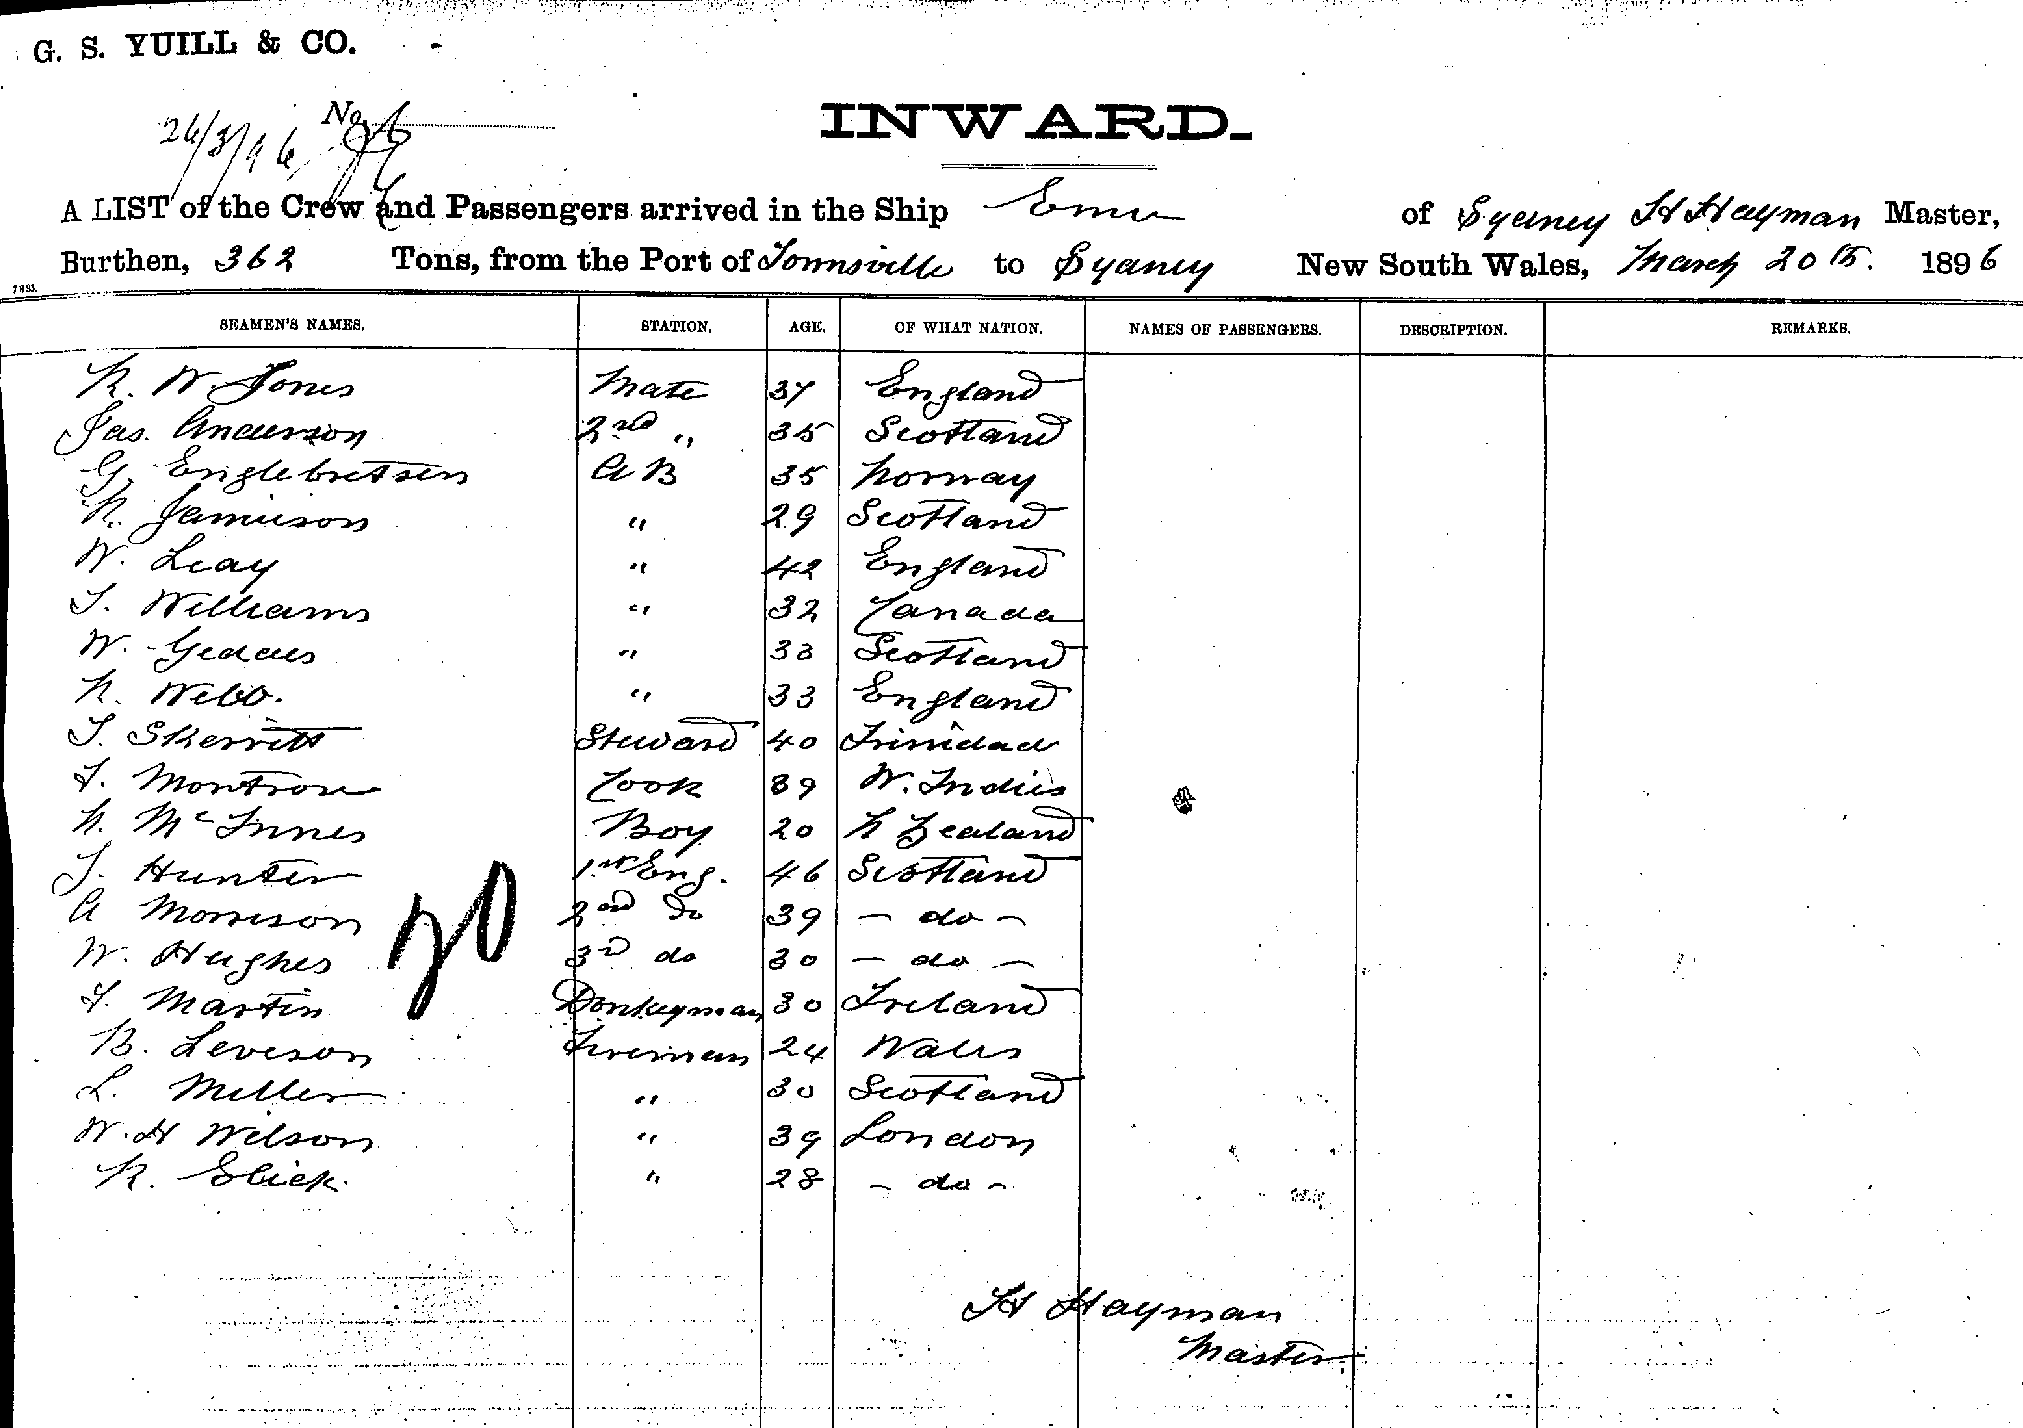 G. S. YUILL & CO.
INWARD.
No.
26/3/96
A LIST of the Crew and Passengers arrived in the Ship Emu of Sydney H Hayman Master,
Burthen, 362 Tons, from the Port of Townsville to Sydney New South Wales, March 20th. 1896
SEAMEN'S NAMES. STATION. AGE. OF WHAT NATION. NAMES OF PASSENGERS. DESCRIPTION. REMARKS.
R. W. Jones Mate 37 England
Jas. Anderson 2nd " 35 Scotland
G. Englebretsen AB 35 Norway
R. Jamieson " 29 Scotland
W. Leay " 42 England
T. Williams " 32 Canada
W. Geddes " 33 Scotland
R. Webb. " 33 England
T. Skerritt Steward 40 Trinidad
F. Montrose Cook 39 W. Indies
N. McInnes Boy 20 N Zealand
J. Hunter 1st Eng. 46 Scotland
A Morrison 2nd do 39 - do -
W. Hughes 3rd do 30 - do -
F. Martin Donkeyman 30 Ireland
B. Leveson Fireman 24 Wales
L. Miller " 30 Scotland
W. H Wilson " 39 London
R. Slick. " 28 - do -
20
H Hayman
Master